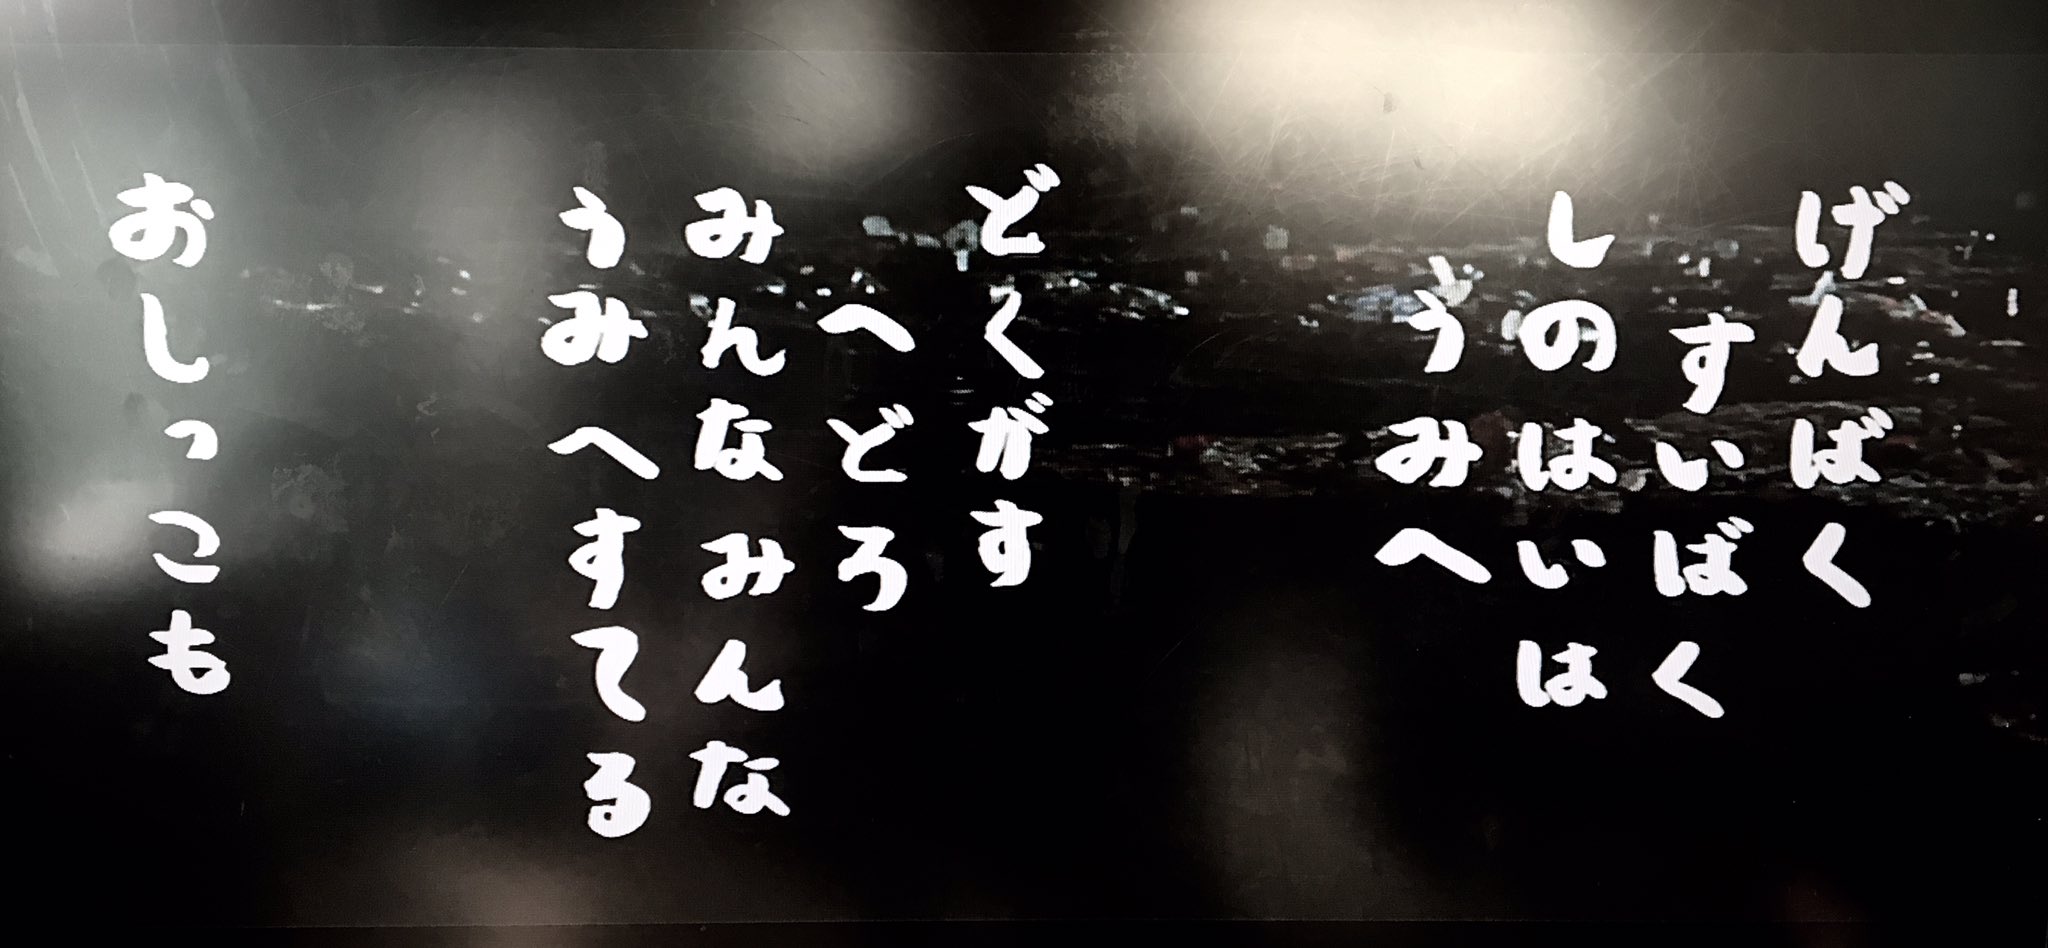 げんばく
すいばく
しのはいは
うみへ
どくがす
へどろ
みんなみんな
うみへすてる
おしっこも